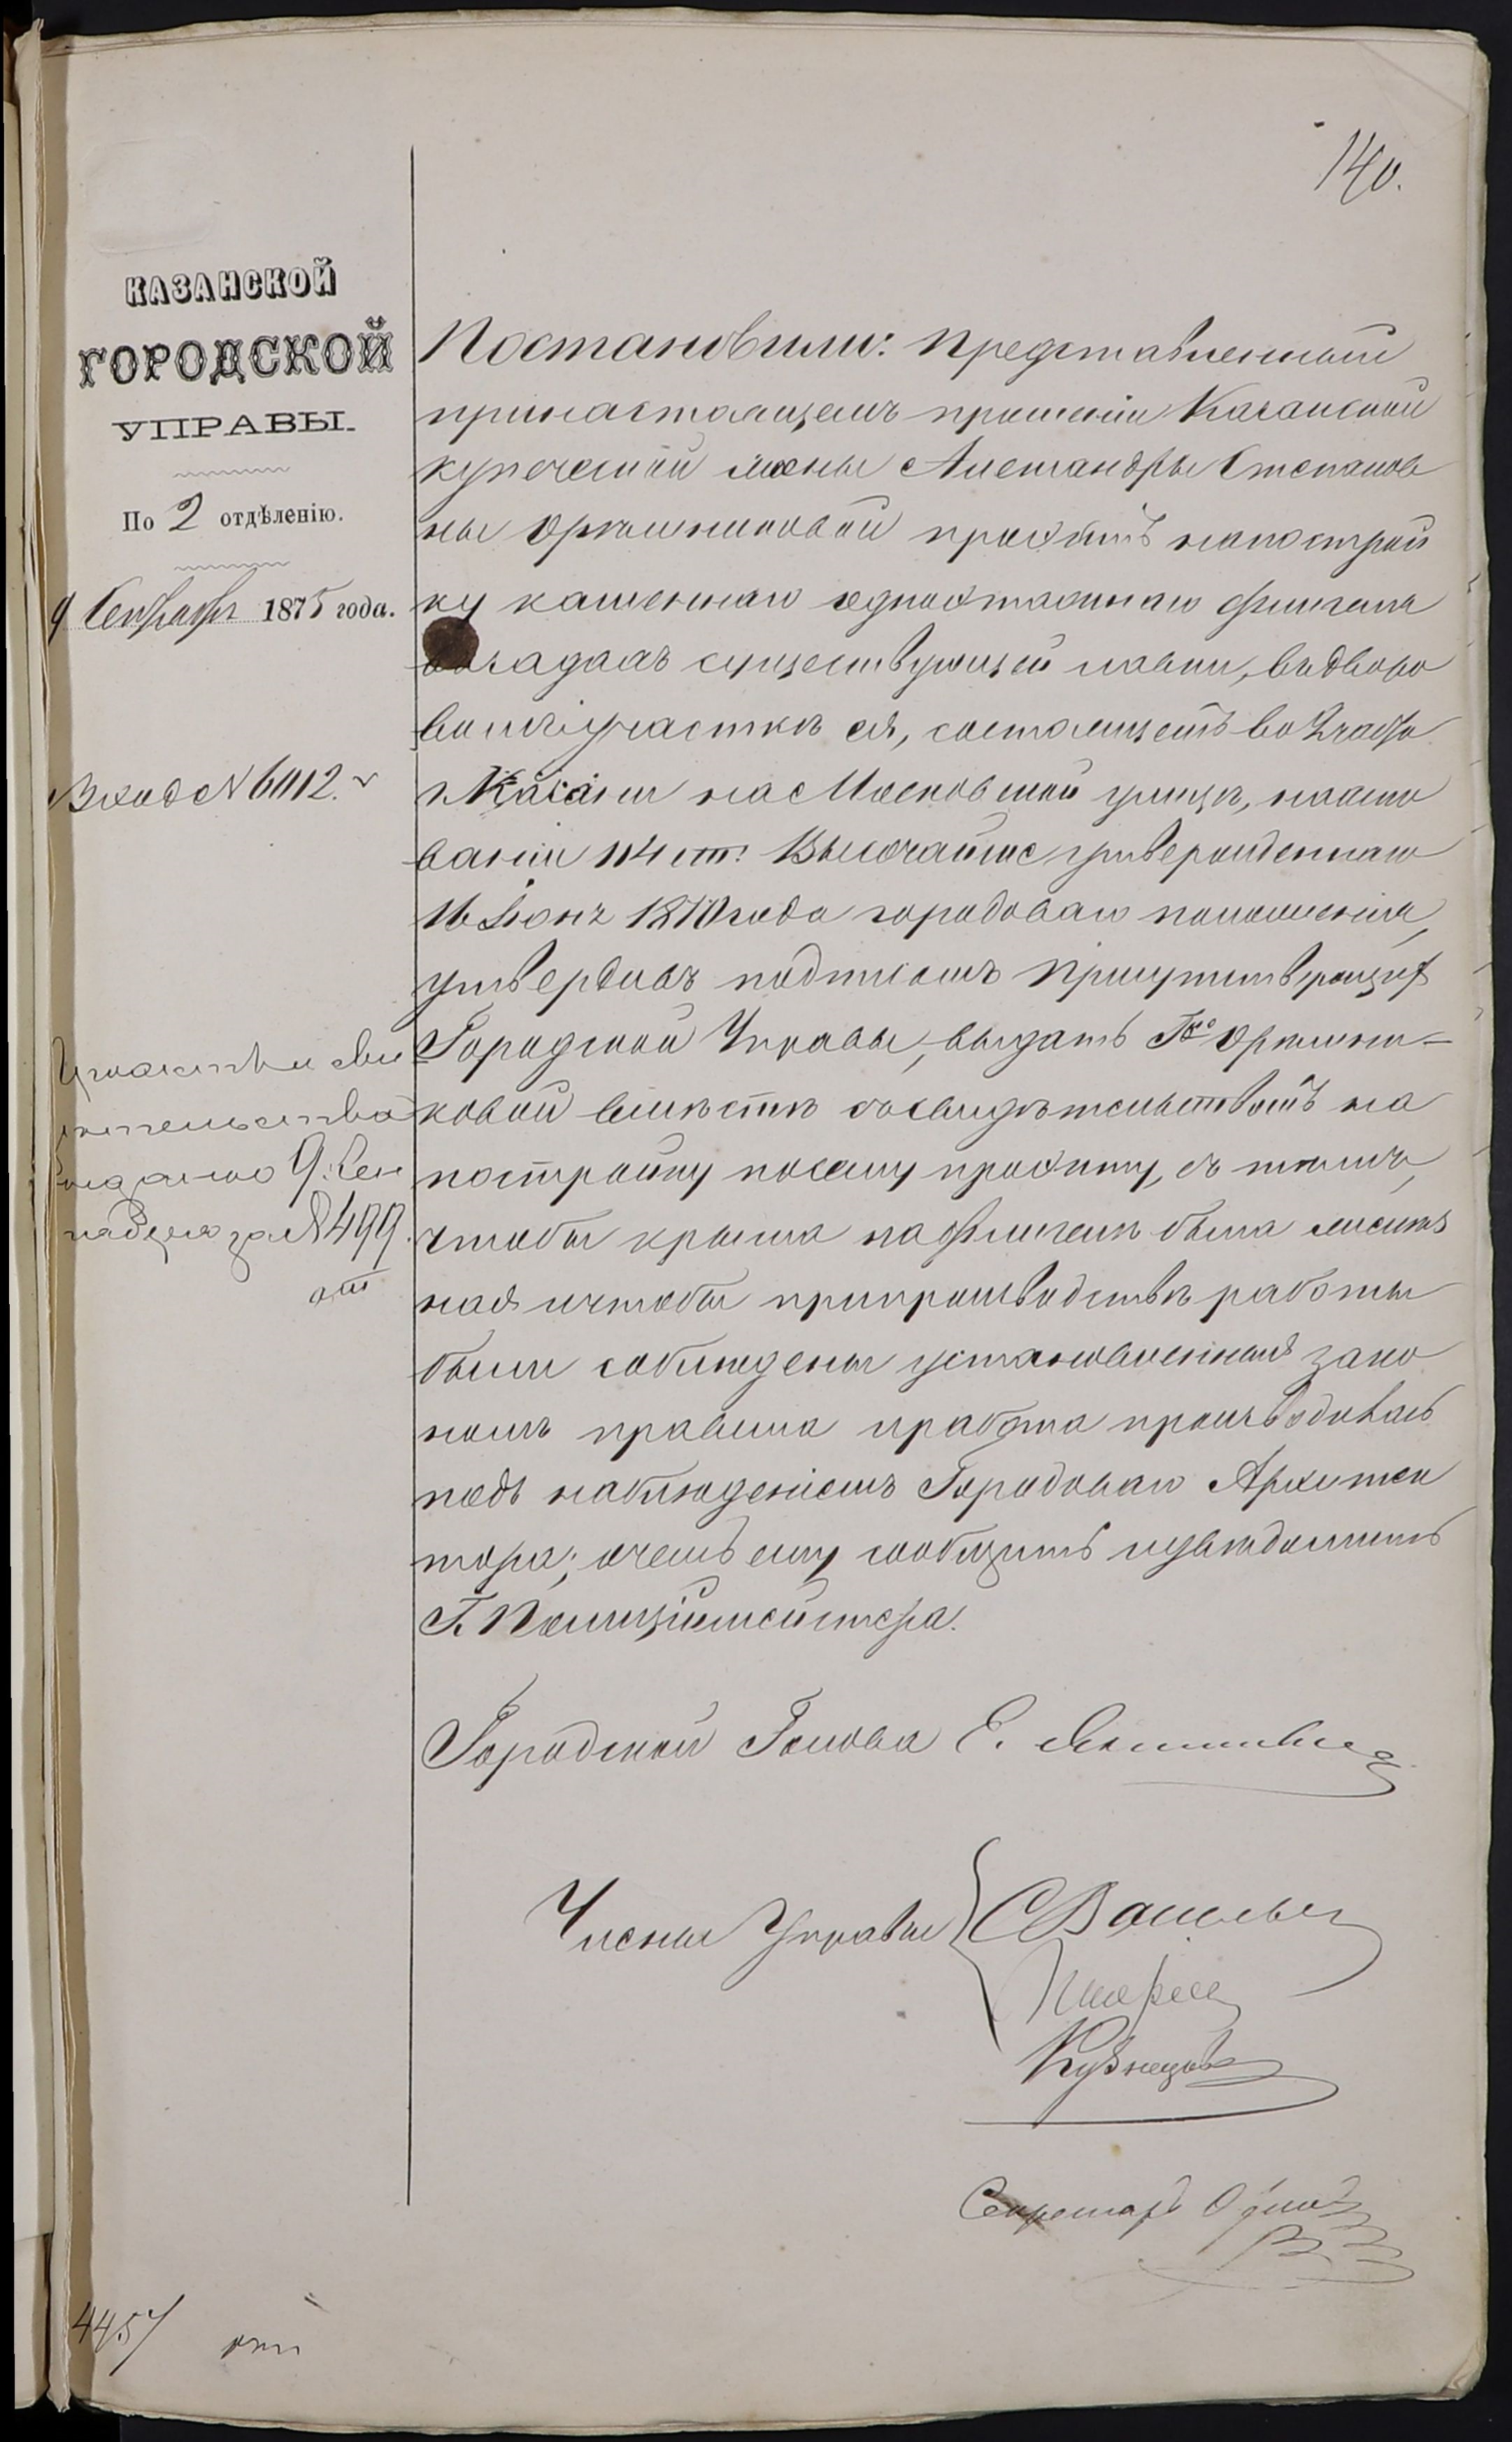 140.
КАЗАНСКОЙ
ГОРОДСКОЙ
УПРАВЫ.
По 2 отдѣленію.
9 Сентября 1875 года.
Вход № 6012.
выдано 9 Сен
за № 499.
Постановили: Представленный
принастоящемъ прошеніи Казанской
купеческой жены Александры Степанов
ны проэктъ напострой
ку каменнаго одноэтажнаго флигеля
существующей лавки, въдворо
вомъ участкѣ ея, состоящемъ во 2 части
г. Казани на Московской улицѣ, наосно
ваніи 114 ст. Высочайше утвержденнаго
16 Іюня 1870 года городоваго положенія,
утвердивъ подписомъ Присутствующихъ
Городской Управы, выдать
ковой вмѣстѣ съ свидѣтельствомъ на
постройку посему проэкту, съ тѣмъ,
чтобы крыша нафлигелѣ была желѣз
ная ичтобы припроизводствѣ работы
были соблюдены установленныя зако
номъ правила иработа производилась
подъ наблюденіемъ Городоваго Архитек
тора; очемъ ему сообщить иувѣдомить
Г. Полиціймейстера.
Городской Голова Е.
Члены Управы С Васильев
Кузнецовъ
Секретарь
4457